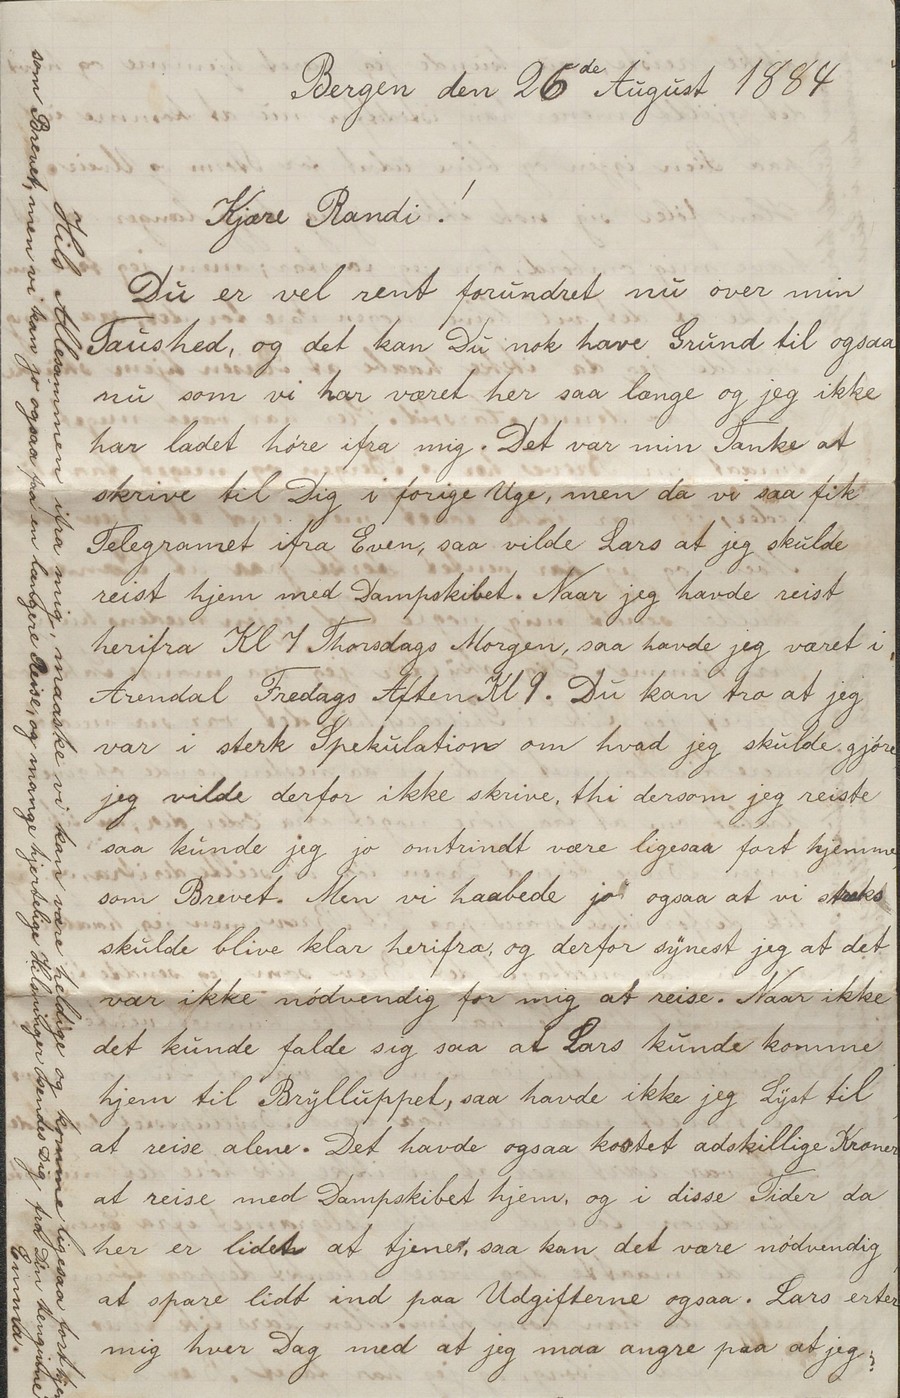 Bergen den 26de August 1884
Kjære Randi!
Du er vel rent forundret nu over min
Taushed, og det kan Du nok have Grund til ogsaa
nu som vi har været her saa længe og jeg ikke
har ladet høre ifra mig. Det var min Tanke at
skrive til Dig i forige Uge, men da vi saa fik
Telegramet ifra Even, saa vilde Lars at jeg skulde
reist hjem med Dampskibet. Naar jeg havde reist
herifra Kl 7 Thorsdags Morgen, saa havde jeg været i
Arendal Fredags Aften Kl 9. Du kan tro at jeg
var i sterk Spekulation om hvad jeg skulde gjøre
jeg vilde derfor ikke skrive, thi dersom jeg reiste
saa kunde jeg jo omtrindt være ligesaa fort hjemme
som Brevet. Men vi haabede jo ogsaa at vi streks
skulde blive klar herifra, og derfor synest jeg at det
var ikke nødvendig for mig at reise. Naar ikke
det kunde falde sig saa at Lars kunde komme
hjem til Brylluppet, saa havde ikke jeg Lyst til
at reise alene. Det havde ogsaa kostet adskillige Kroner
at reise med Dampskibet hjem, og i disse Tider da
her er lidet at tjene, saa kan det være nødvendig
at spare lidt ind paa Udgifterne ogsaa. Lars erter
mig hver Dag med at jeg maa angre paa at jeg
Hils Allesammen ifra mig, maaske vi kan være heldige og komme ligesaa fort hjem
som Brevet, men vi kan jo ogsaa faa en længere Reise, og mange hjertelige Hilsninger sendes Dig fra Din hengivne
Emma.